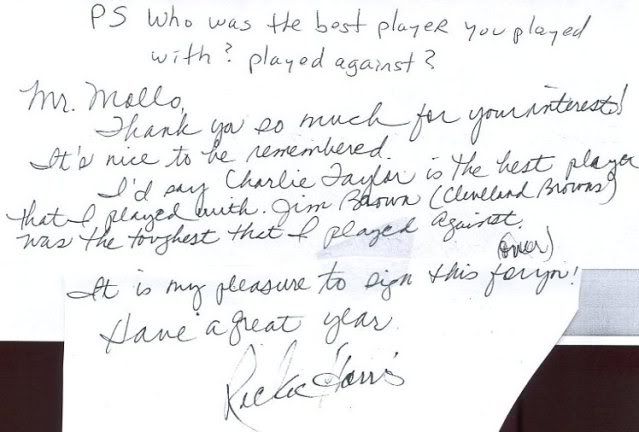 PS Who was the best player you played
with? played against?
Mr. Mollo,
Thank you so much for your interest!
It's nice to be remembered.
I'd say Charlie Taylor is the best player
that I played with. Jim Brown (Cleveland Browns)
was the toughest that I played against.
(over)
It is my pleasure to sign this for you!
Have a great year.
Rickie Harris